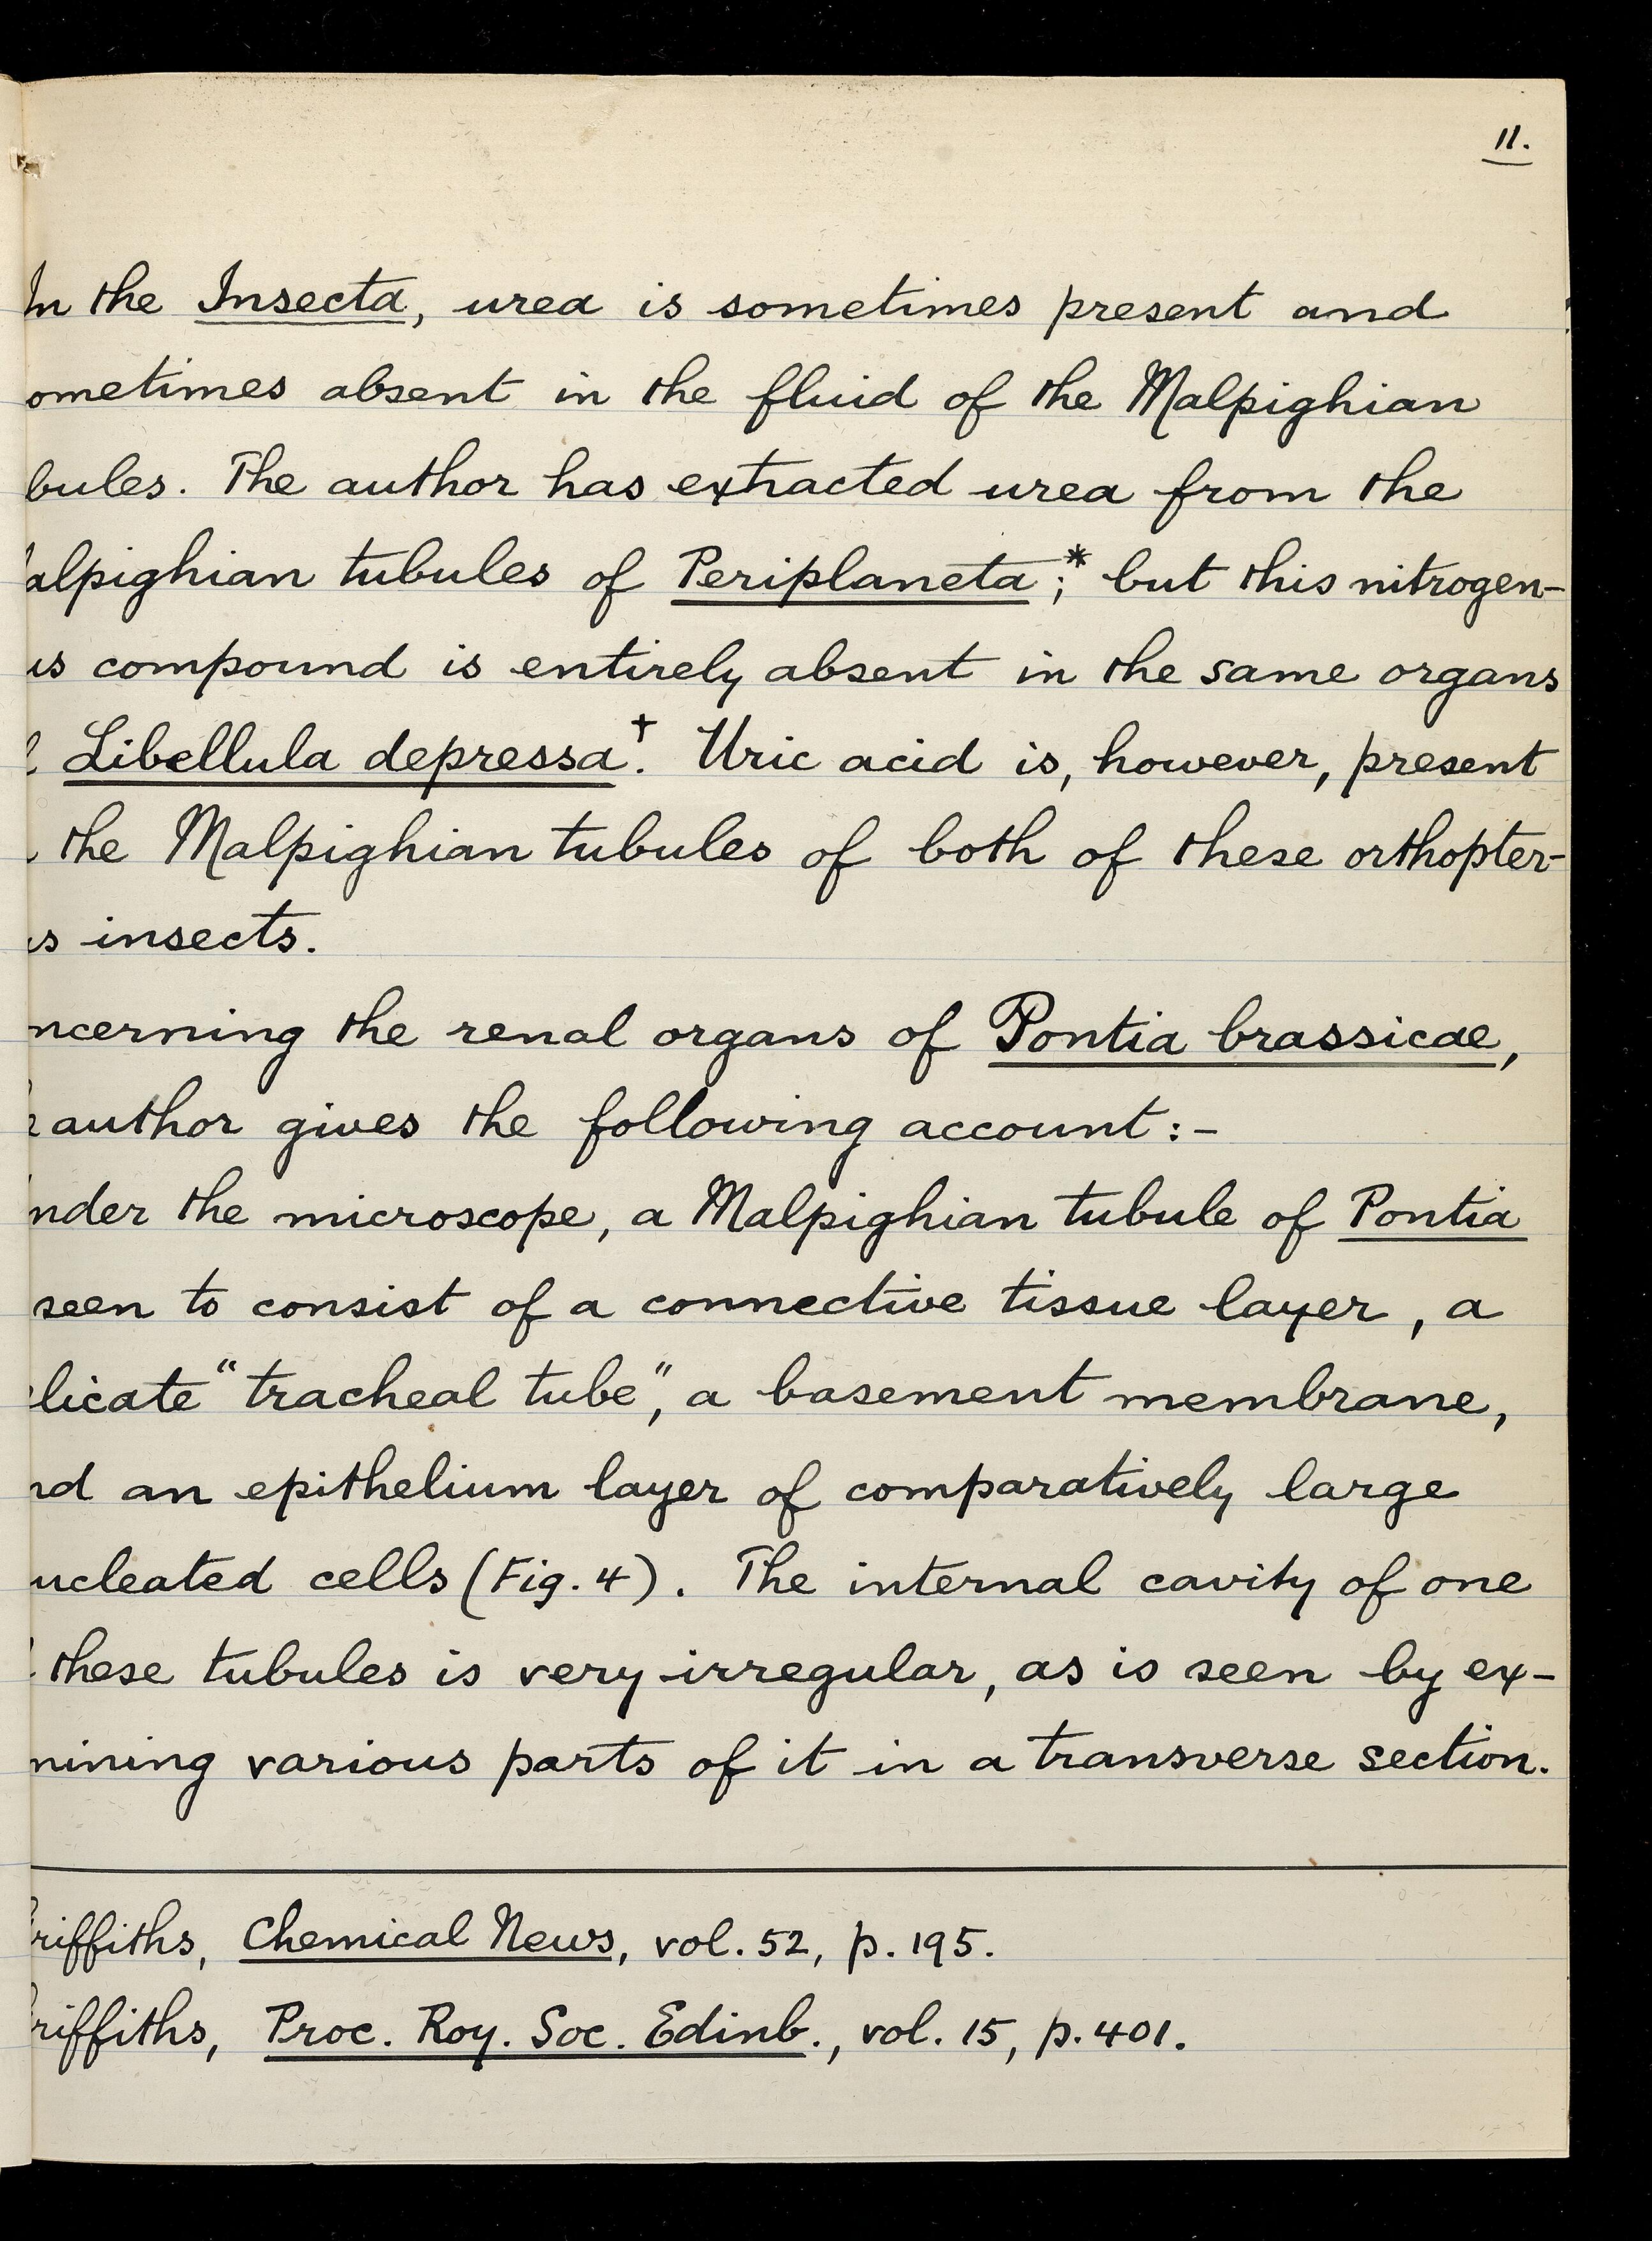 11.
In the Insecta, urea is sometimes present and
ometimes absent in the fluid of the Malpighian
bules. The author has extracted urea from the
alpighian tubules of Periplaneta;* but this nitrogen-
us compound is entirely absent in the same organs
Libellula depressa†. Uric acid is, however, present
the Malpighian tubules of both of these orthopter-
us insects.
ncerning the renal organs of Pontia brassicae,
author gives the following account:-
nder the microscope, a Malpighian tubule of Pontia
seen to consist of a connective tissue layer, a
licate "tracheal tube", a basement membrane,
nd an epithelium layer of comparatively large
ucleated cells (Fig. 4). The internal cavity of one
these tubules is very irregular, as is seen by ex-
mining various parts of it in a transverse section.
riffiths, Chemical News, vol. 52, p. 195.
riffiths, Proc. Roy. Soc. Edinb., vol. 15, p. 401.